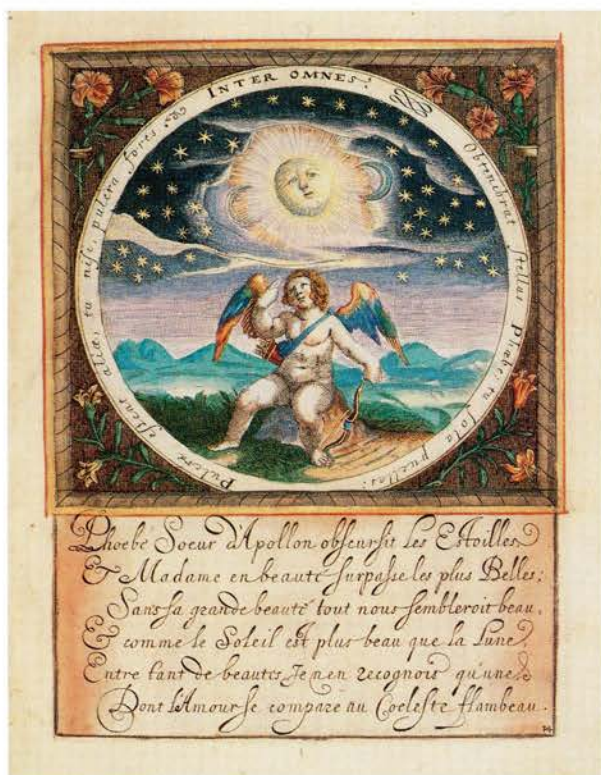 INTER OMNES.
Obtenebrat stellas Phœbe: tu sola puellas:
Pulcræ essent aliæ, tu nisi, pulcra fores.
Phoebé Soeur d'Apollon obscursit les Estoilles
Et Madame en beauté surpasse les plus Belles:
Sans sa grande beauté tout nous sembleroit beau.
Et comme le Soleil est plus beau que la Lune,
Entre tant de beautes Je n'en recognois qu'une
Dont l'Amour se compare au Coeleste flambeau.